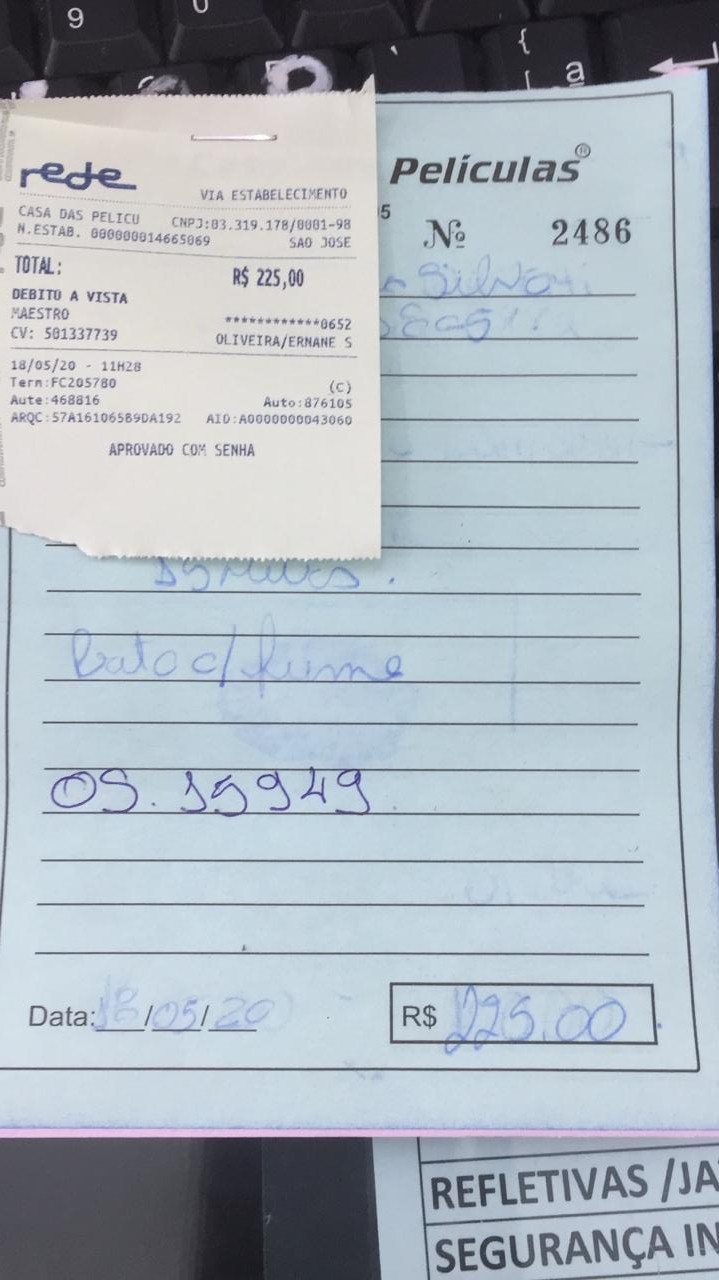 9
{
[ ª
rede
VIA ESTABELECIMENTO
CASA DAS PELICU CNPJ:03.319.178/0001-98
N.ESTAB. 000000014665069 SAO JOSE
TOTAL: R$ 225,00
DEBITO A VISTA
MAESTRO ************0652
CV: 501337739 OLIVEIRA/ERNANE S
18/05/20 - 11H28
Term:FC205780 (C)
Aute:468816 Auto:876105
ARQC:57A161065B9DA192 AID:A0000000043060
APROVADO COM SENHA
Películas®
5
Nº 2486
Silva
c/ fume
OS. 15949
Data: 18/05/20
R$ 225,00
REFLETIVAS /JA
SEGURANÇA IN